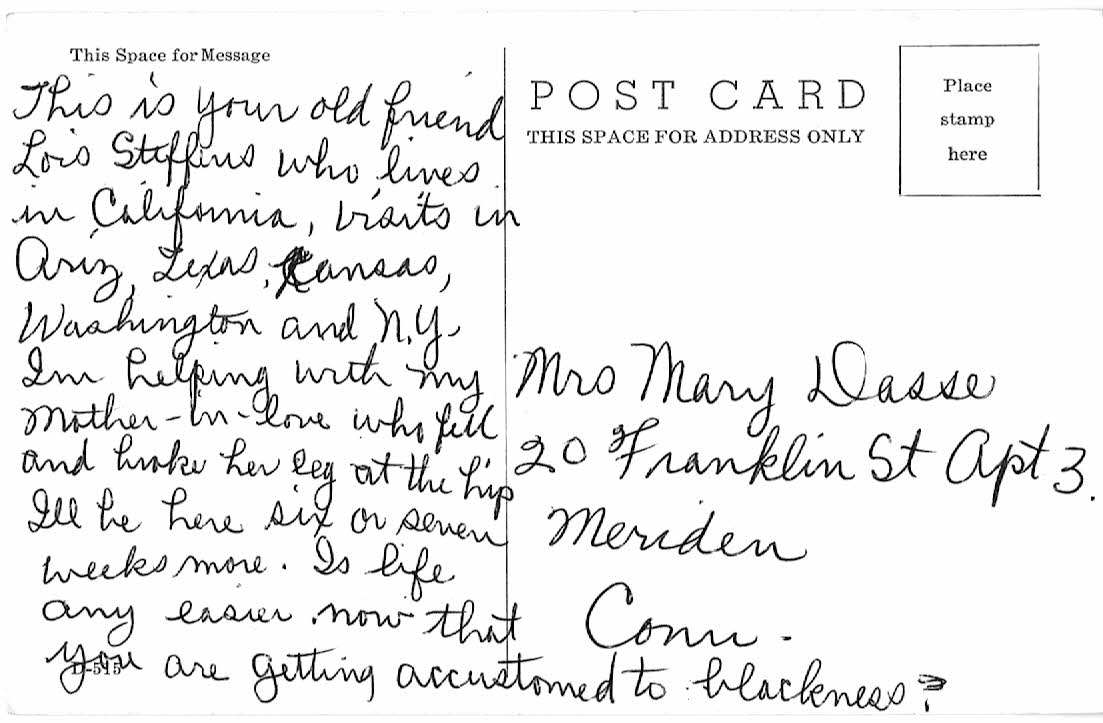 This Space for Message
This is your old friend
Lois Steffins who lives
in California, visits in
Ariz, Texas, Kansas,
Washington and N.Y.
Im helping with my
Mother-in-love who fell
and broke her leg at the hip
Ill be here six or seven
weeks more. Is life
any easier now that
you are getting accustomed to blackness?
D-515
POST CARD
THIS SPACE FOR ADDRESS ONLY
Place
stamp
here
Mrs Mary Dasse
20 Franklin St Apt 3.
Meriden
Conn.